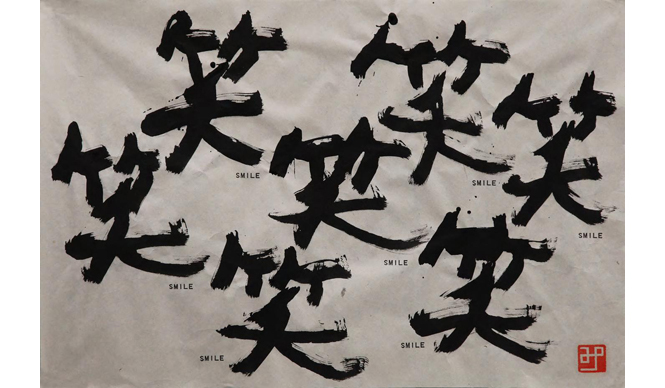 笑
SMILE
笑
SMILE
笑
SMILE
笑
SMILE
笑
SMILE
笑
SMILE
笑
SMILE